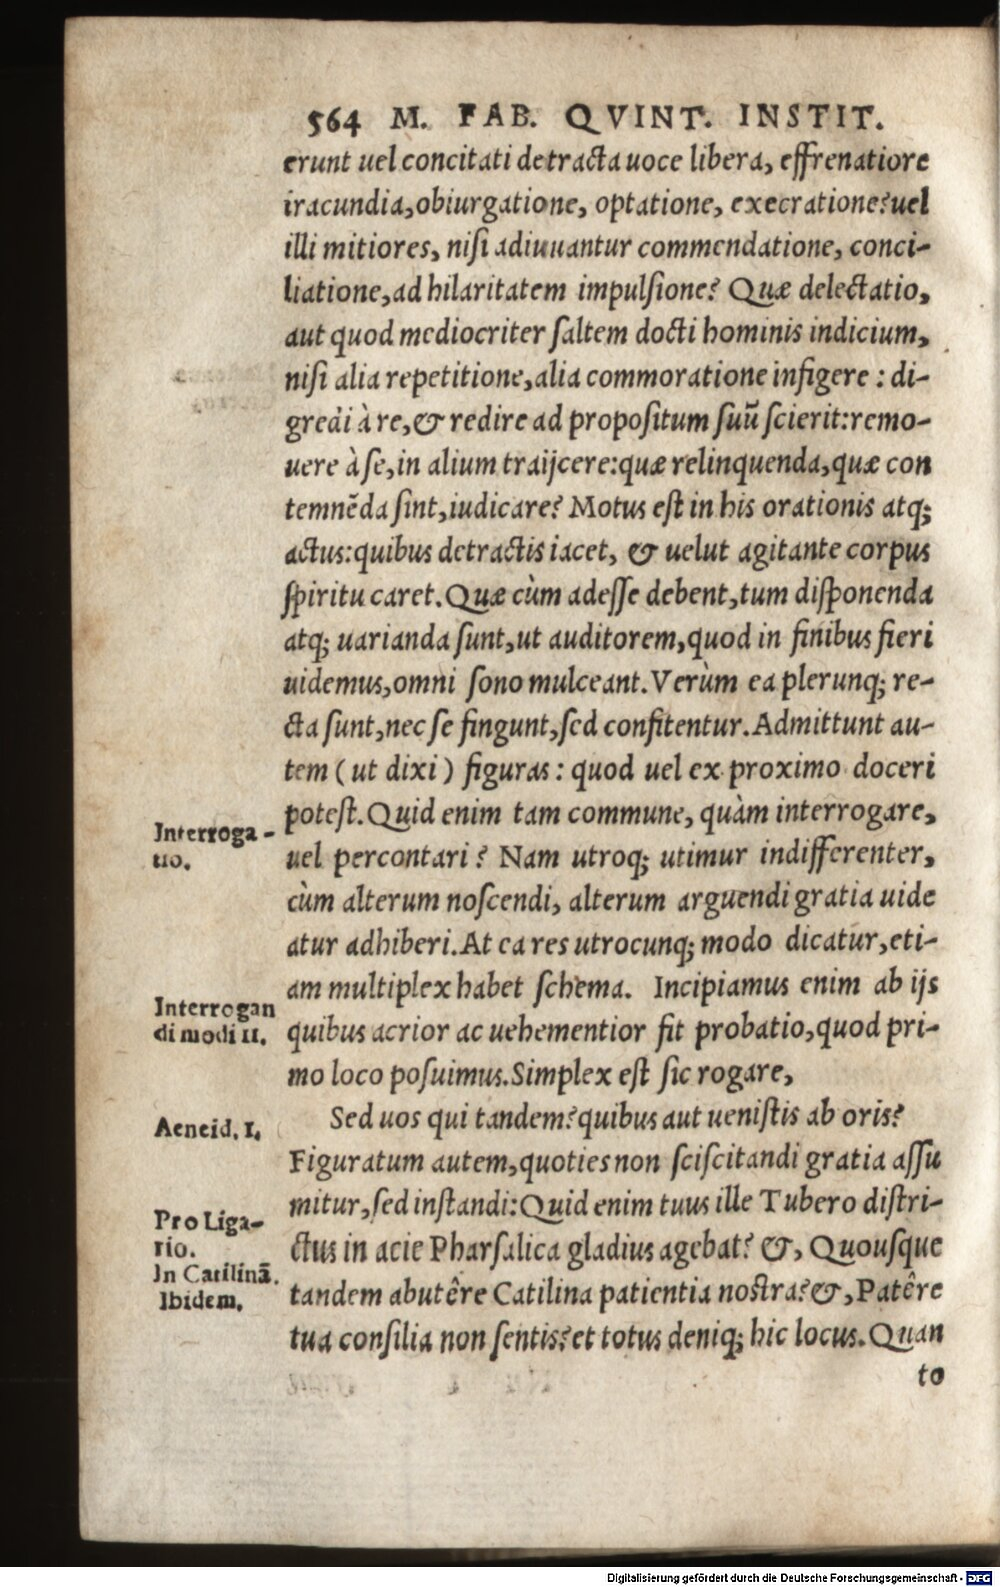 564 M. FAB. QVINT. INSTIT.
erunt uel concitati detracta uoce libera, effrenatiore
iracundia, obiurgatione, optatione, execratione? uel
illi mitiores, nisi adiuuantur commendatione, conci-
liatione, ad hilaritatem impulsione? Quæ delectatio,
aut quod mediocriter saltem docti hominis indicium,
nisi alia repetitione, alia commoratione infigere : di-
gredi à re, & redire ad propositum suũ scierit: remo-
uere à se, in alium traijcere: quæ relinquenda, quæ con
temnẽda sint, iudicare? Motus est in his orationis atq;
actus: quibus detractis iacet, & uelut agitante corpus
spiritu caret. Quæ cùm adesse debent, tum disponenda
atq; uarianda sunt, ut auditorem, quod in finibus fieri
uidemus, omni sono mulceant. Verùm ea plerunq; re-
cta sunt, nec se fingunt, sed confitentur. Admittunt au-
tem ( ut dixi ) figuras : quod uel ex proximo doceri
potest. Quid enim tam commune, quàm interrogare,
Interroga-
tio.
uel percontari? Nam utroq; utimur indifferenter,
cùm alterum noscendi, alterum arguendi gratia uide
atur adhiberi. At ea res utrocunq; modo dicatur, eti-
am multiplex habet schema. Incipiamus enim ab ijs
Interrogan
di modi II.
quibus acrior ac uehementior fit probatio, quod pri-
mo loco posuimus. Simplex est sic rogare,
Aeneid. I.
Sed uos qui tandem? quibus aut uenistis ab oris?
Figuratum autem, quoties non sciscitandi gratia assu
mitur, sed instandi: Quid enim tuus ille Tubero distri-
Pro Liga-
rio.
ctus in acie Pharsalica gladius agebat? &, Quousque
In Catilinã.
tandem abutêre Catilina patientia nostra? &, Patêre
Ibidem.
tua consilia non sentis? et totus deniq; hic locus. Quan
to
Digitalisierung gefördert durch die Deutsche Forschungsgemeinschaft - DFG